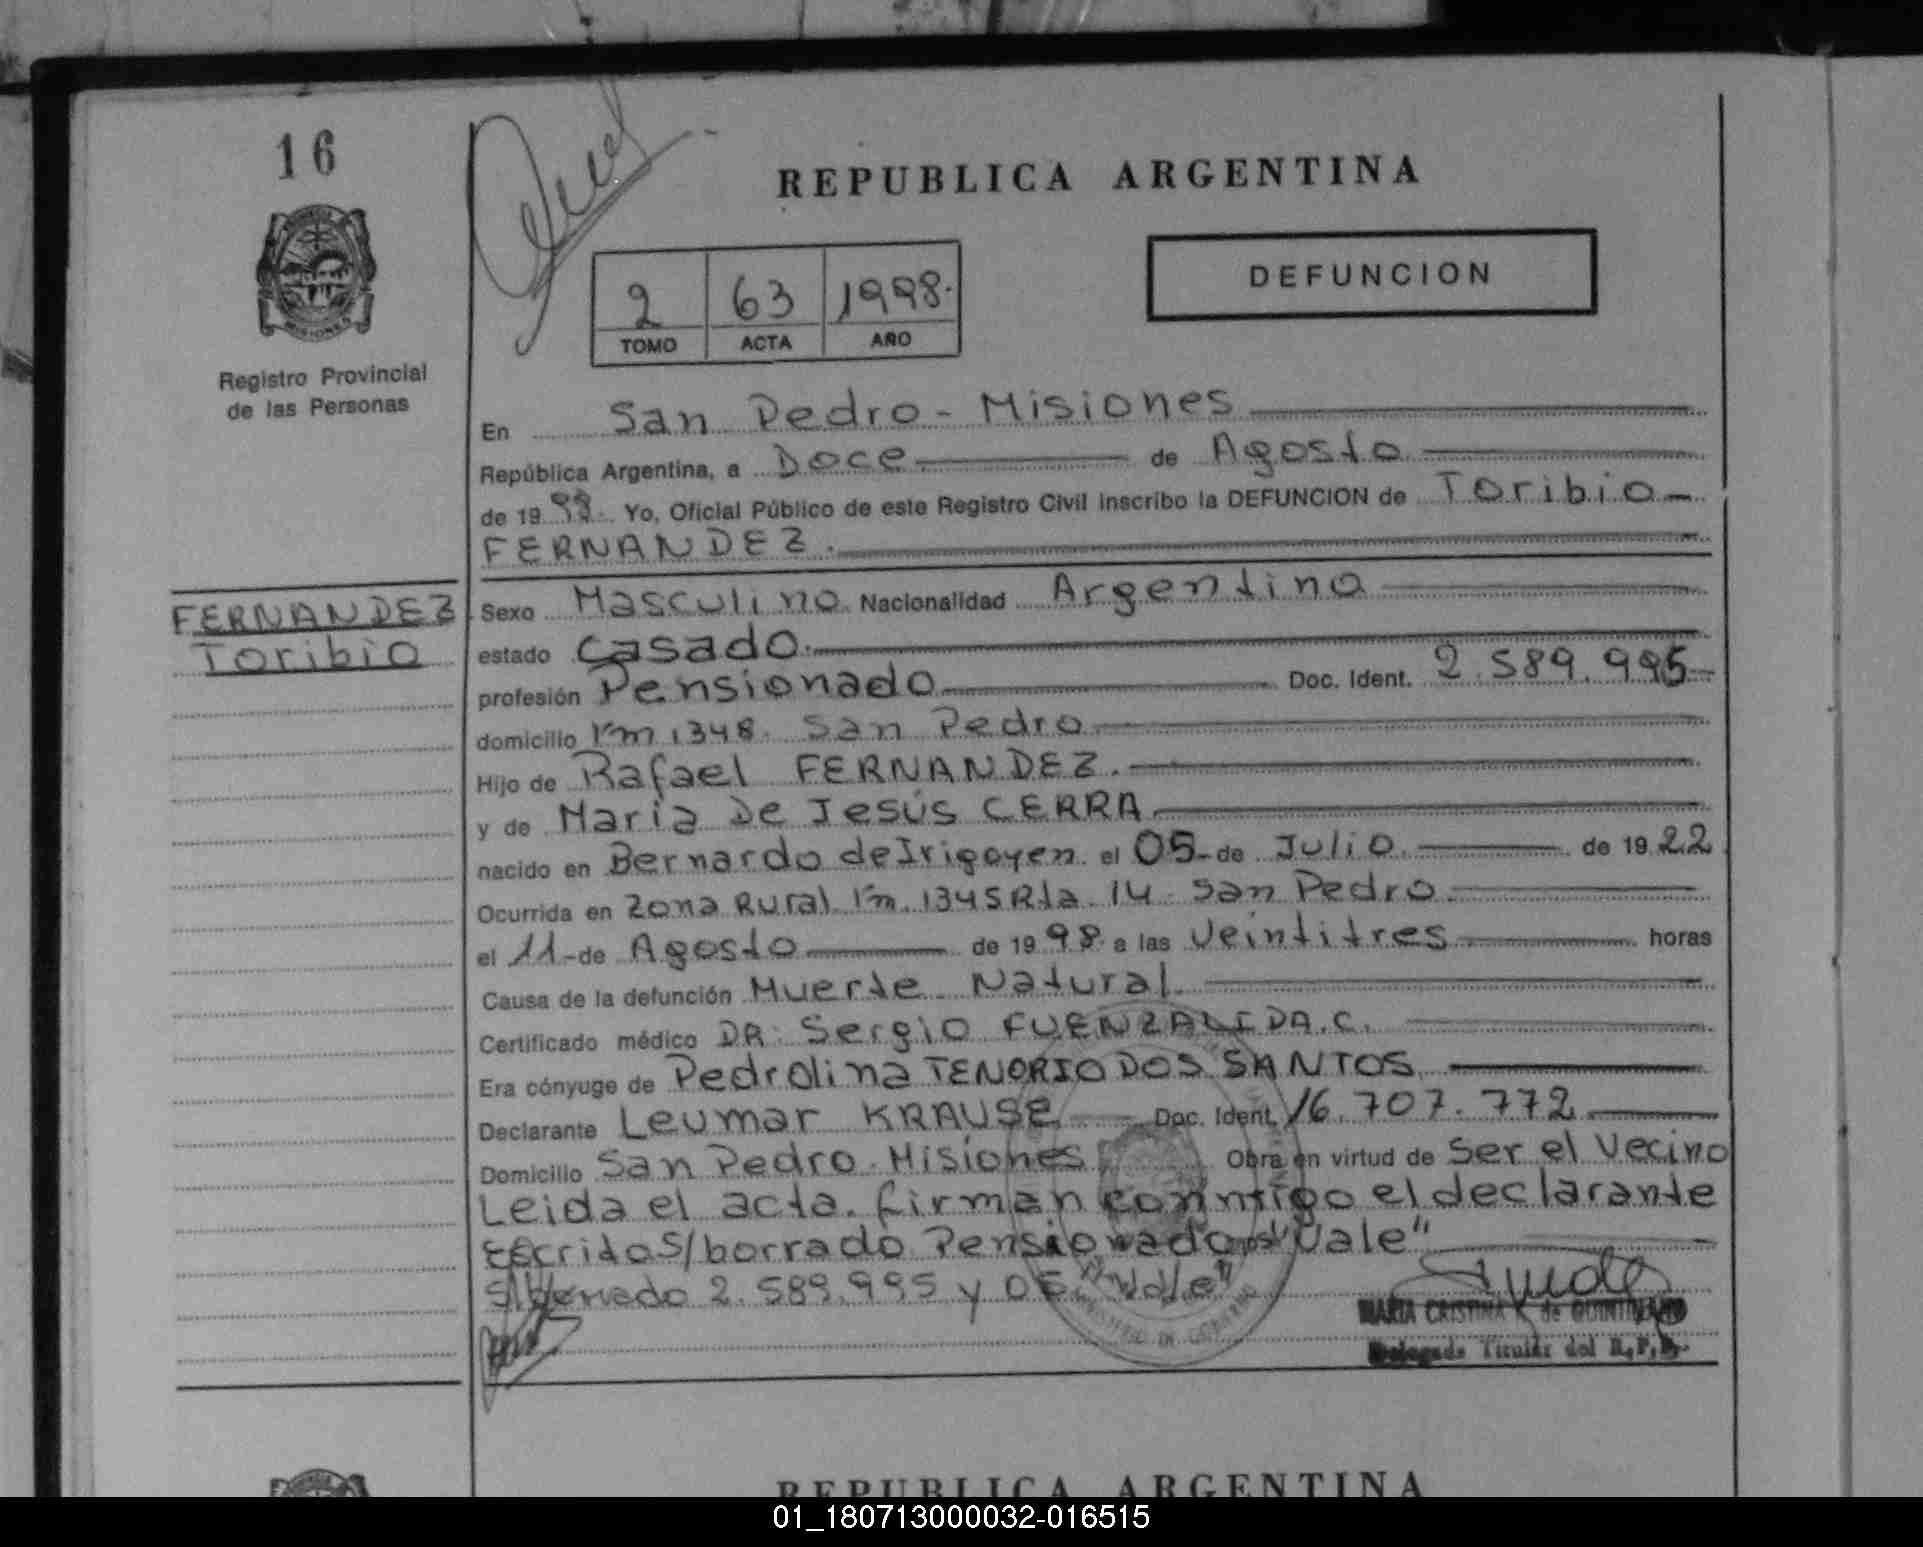 16
REPUBLICA ARGENTINA
DEFUNCION
2 63 1998.
TOMO ACTA AÑO
MISIONES
Registro Provincial
de las Personas
En San Pedro - Misiones
República Argentina, a Doce de Agosto
de 19 98. Yo, Oficial Público de este Registro Civil inscribo la DEFUNCION de Toribio
FERNANDEZ.
FERNANDEZ
Toribio
Sexo Masculino Nacionalidad Argentino
estado Casado.
profesión Pensionado Doc. Ident. 2.589.995
domicilio Km 1348. San Pedro
Hijo de Rafael FERNANDEZ.
y de Maria De Jesús CERRA
nacido en Bernardo de Irigoyen el 05 - de Julio de 19 22
Ocurrida en Zona Rural Km. 1345 Rta. 14 San Pedro
el 11 - de Agosto de 19 98. a las Veintitres horas
Causa de la defunción Muerte Natural.
Certificado médico DR. Sergio FUENZALIDA.C.
Era cónyuge de Pedrolina TENORIO DOS SANTOS
Declarante Leumar KRAUSE Doc. Ident. 16.707.772
Domicilio San Pedro. Misiones Obra en virtud de Ser el Vecino
Leida el acta. firman conmigo el declarante
Escritos/borrado Pensionado "Vale"
S/borrado 2.589.995 y 05. "Vale"
MARIA CRISTINA K. de QUINTANA
Delegada Titular del R.P.P.
REPUBLICA ARGENTINA
01_180713000032-016515